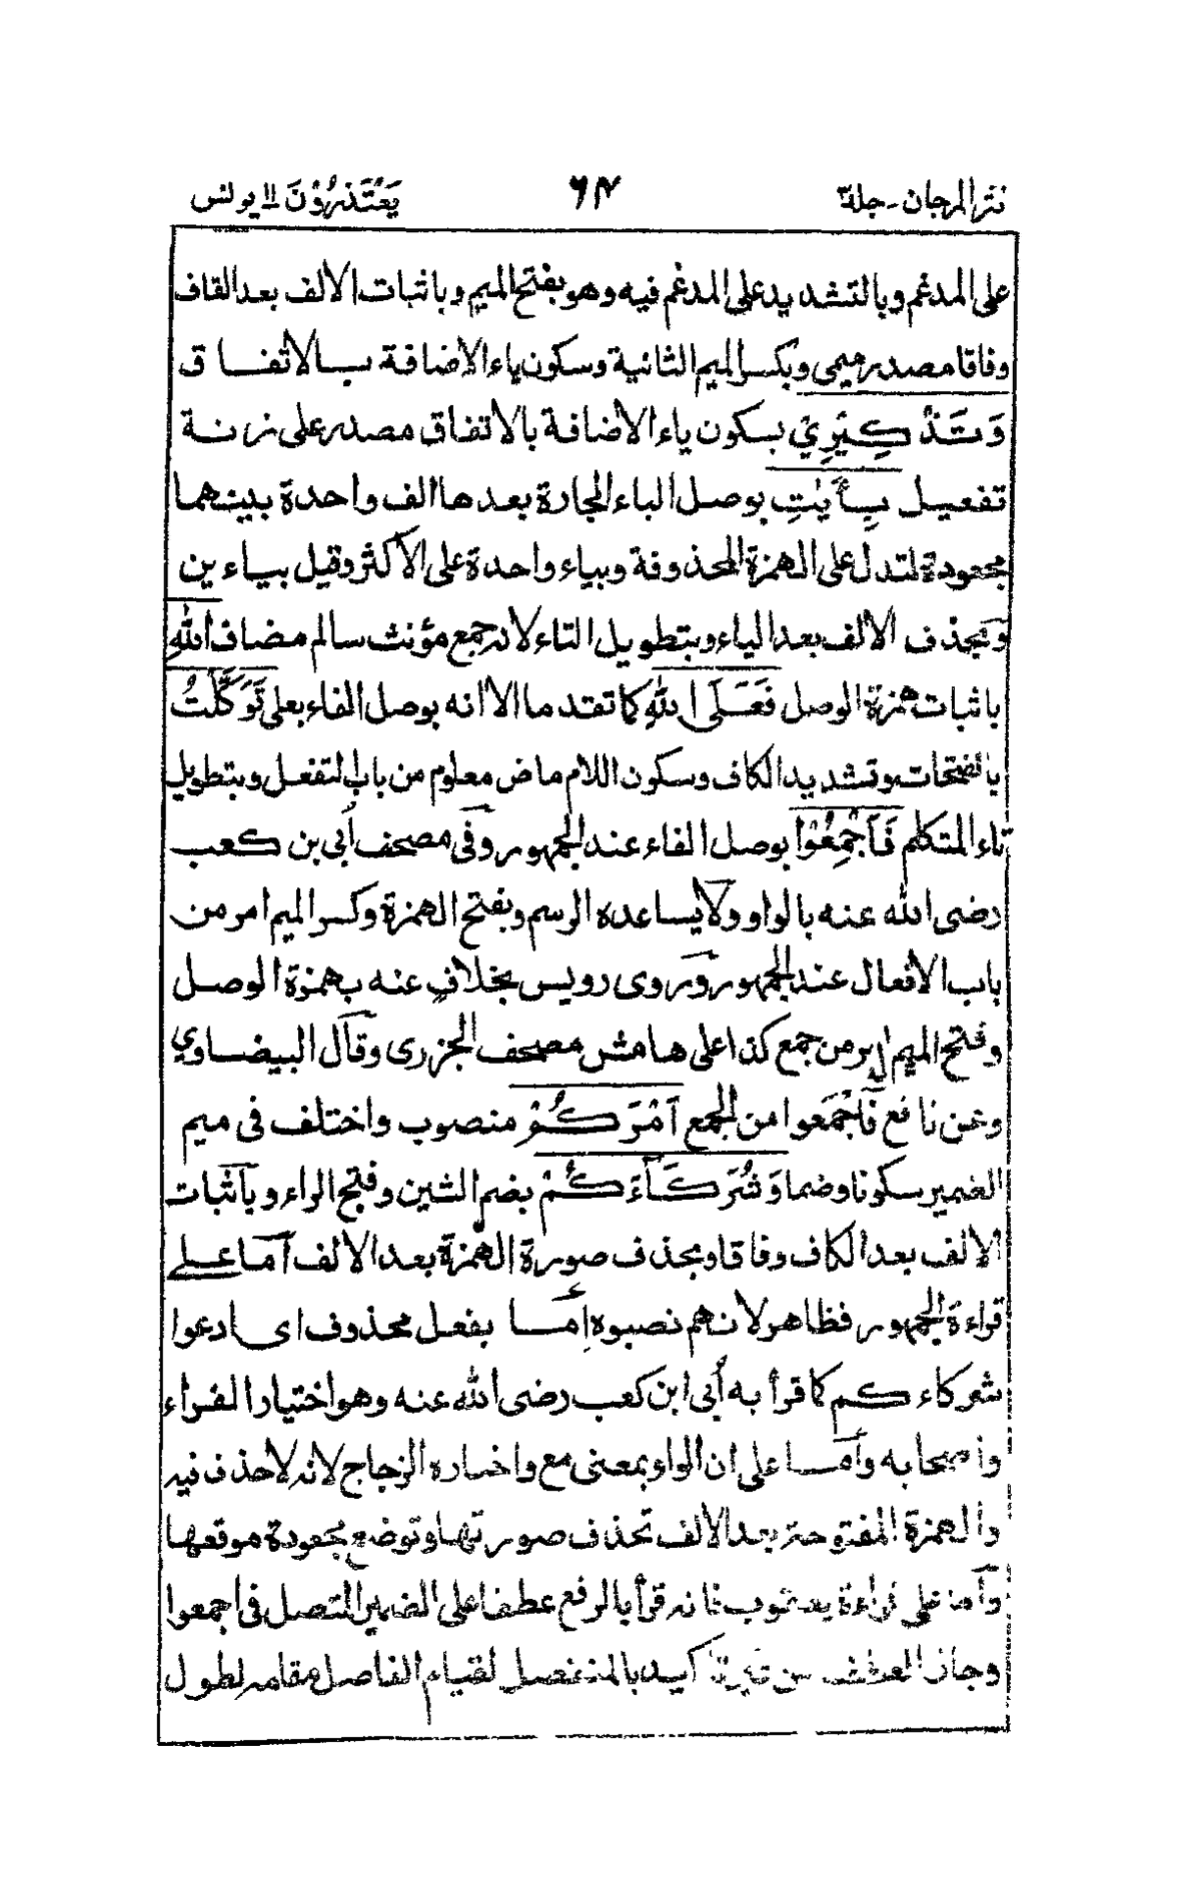 نثر المرجان - جلد٣ ٦٤ يَعْتَذِرُوْنَ ١١ يونس
على المدغم وبالتشديد على المدغم فيه وهو بفتح الميم وباثبات الالف بعد القاف
وفاقا مصدر ميمى وبكسر الميم الثانية وسكون ياء الاضافة بالاتفاق
وَتَذْكِيْرِيْ بسكون ياء الاضافة بالاتفاق مصدر على زنة
تفعيل بِأٰيٰتِ بوصل الباء الجارة بعدها الف واحدة بينهما
مجعودة لتدل على الهمزة المحذوفة وبياء واحدة على الأكثر وقيل بياءين
وبحذف الالف بعد الياء وبتطويل التاء لانه جمع مؤنث سالم مضاف اللهِ
باثبات همزة الوصل فَعَلَى اللهِ كما تقدم الا انه بوصل الفاء بعلى تَوَكَّلْتُ
بالفتحات وتشديد الكاف وسكون اللام ماض معلوم من باب التفعل وبتطويل
تاء المتكلم فَاَجْمِعُوْا بوصل الفاء عند الجمهور وفى مصحف أبي بن كعب
رضى الله عنه بالواو ولا يساعده الرسم وبفتح الهمزة وكسر الميم امر من
باب الافعال عند الجمهور وروى رويس بخلافٍ عنه بهمزة الوصل
وفتح الميم امر من جمع كذا على هامش مصحف الجزرى وقال البيضاوي
وعن نافع فَاجْمَعوا من الجمع اَمْرَكُمْ منصوب واختلف فى ميم
الضمير سكونا وضما وَشُرَكَآءَكُمْ بضم الشين وفتح الراء وباثبات
الالف بعد الكاف وفاقا وبحذف صورة الهمزة بعد الالف اما على
قراءة الجمهور فظاهر لانهم نصبوه إما بفعل محذوف اى ادعوا
شركاءكم كما قرأ به أبي ابن كعب رضى الله عنه وهو اختيار الفراء
واصحابه وأما على ان الواو بمعنى مع واختاره الزجاج لانه لا حذف فيه
والهمزة المفتوحة بعد الالف تحذف صورتها وتوضع مجعودة موقعها
وأما على قراءة يعقوب فانه قرأ بالرفع عطفا على الضمير المتصل فى اجمعوا
وجاز العطف من غير تاكيد بالمنفصل لقيام الفاصل مقامه لطول